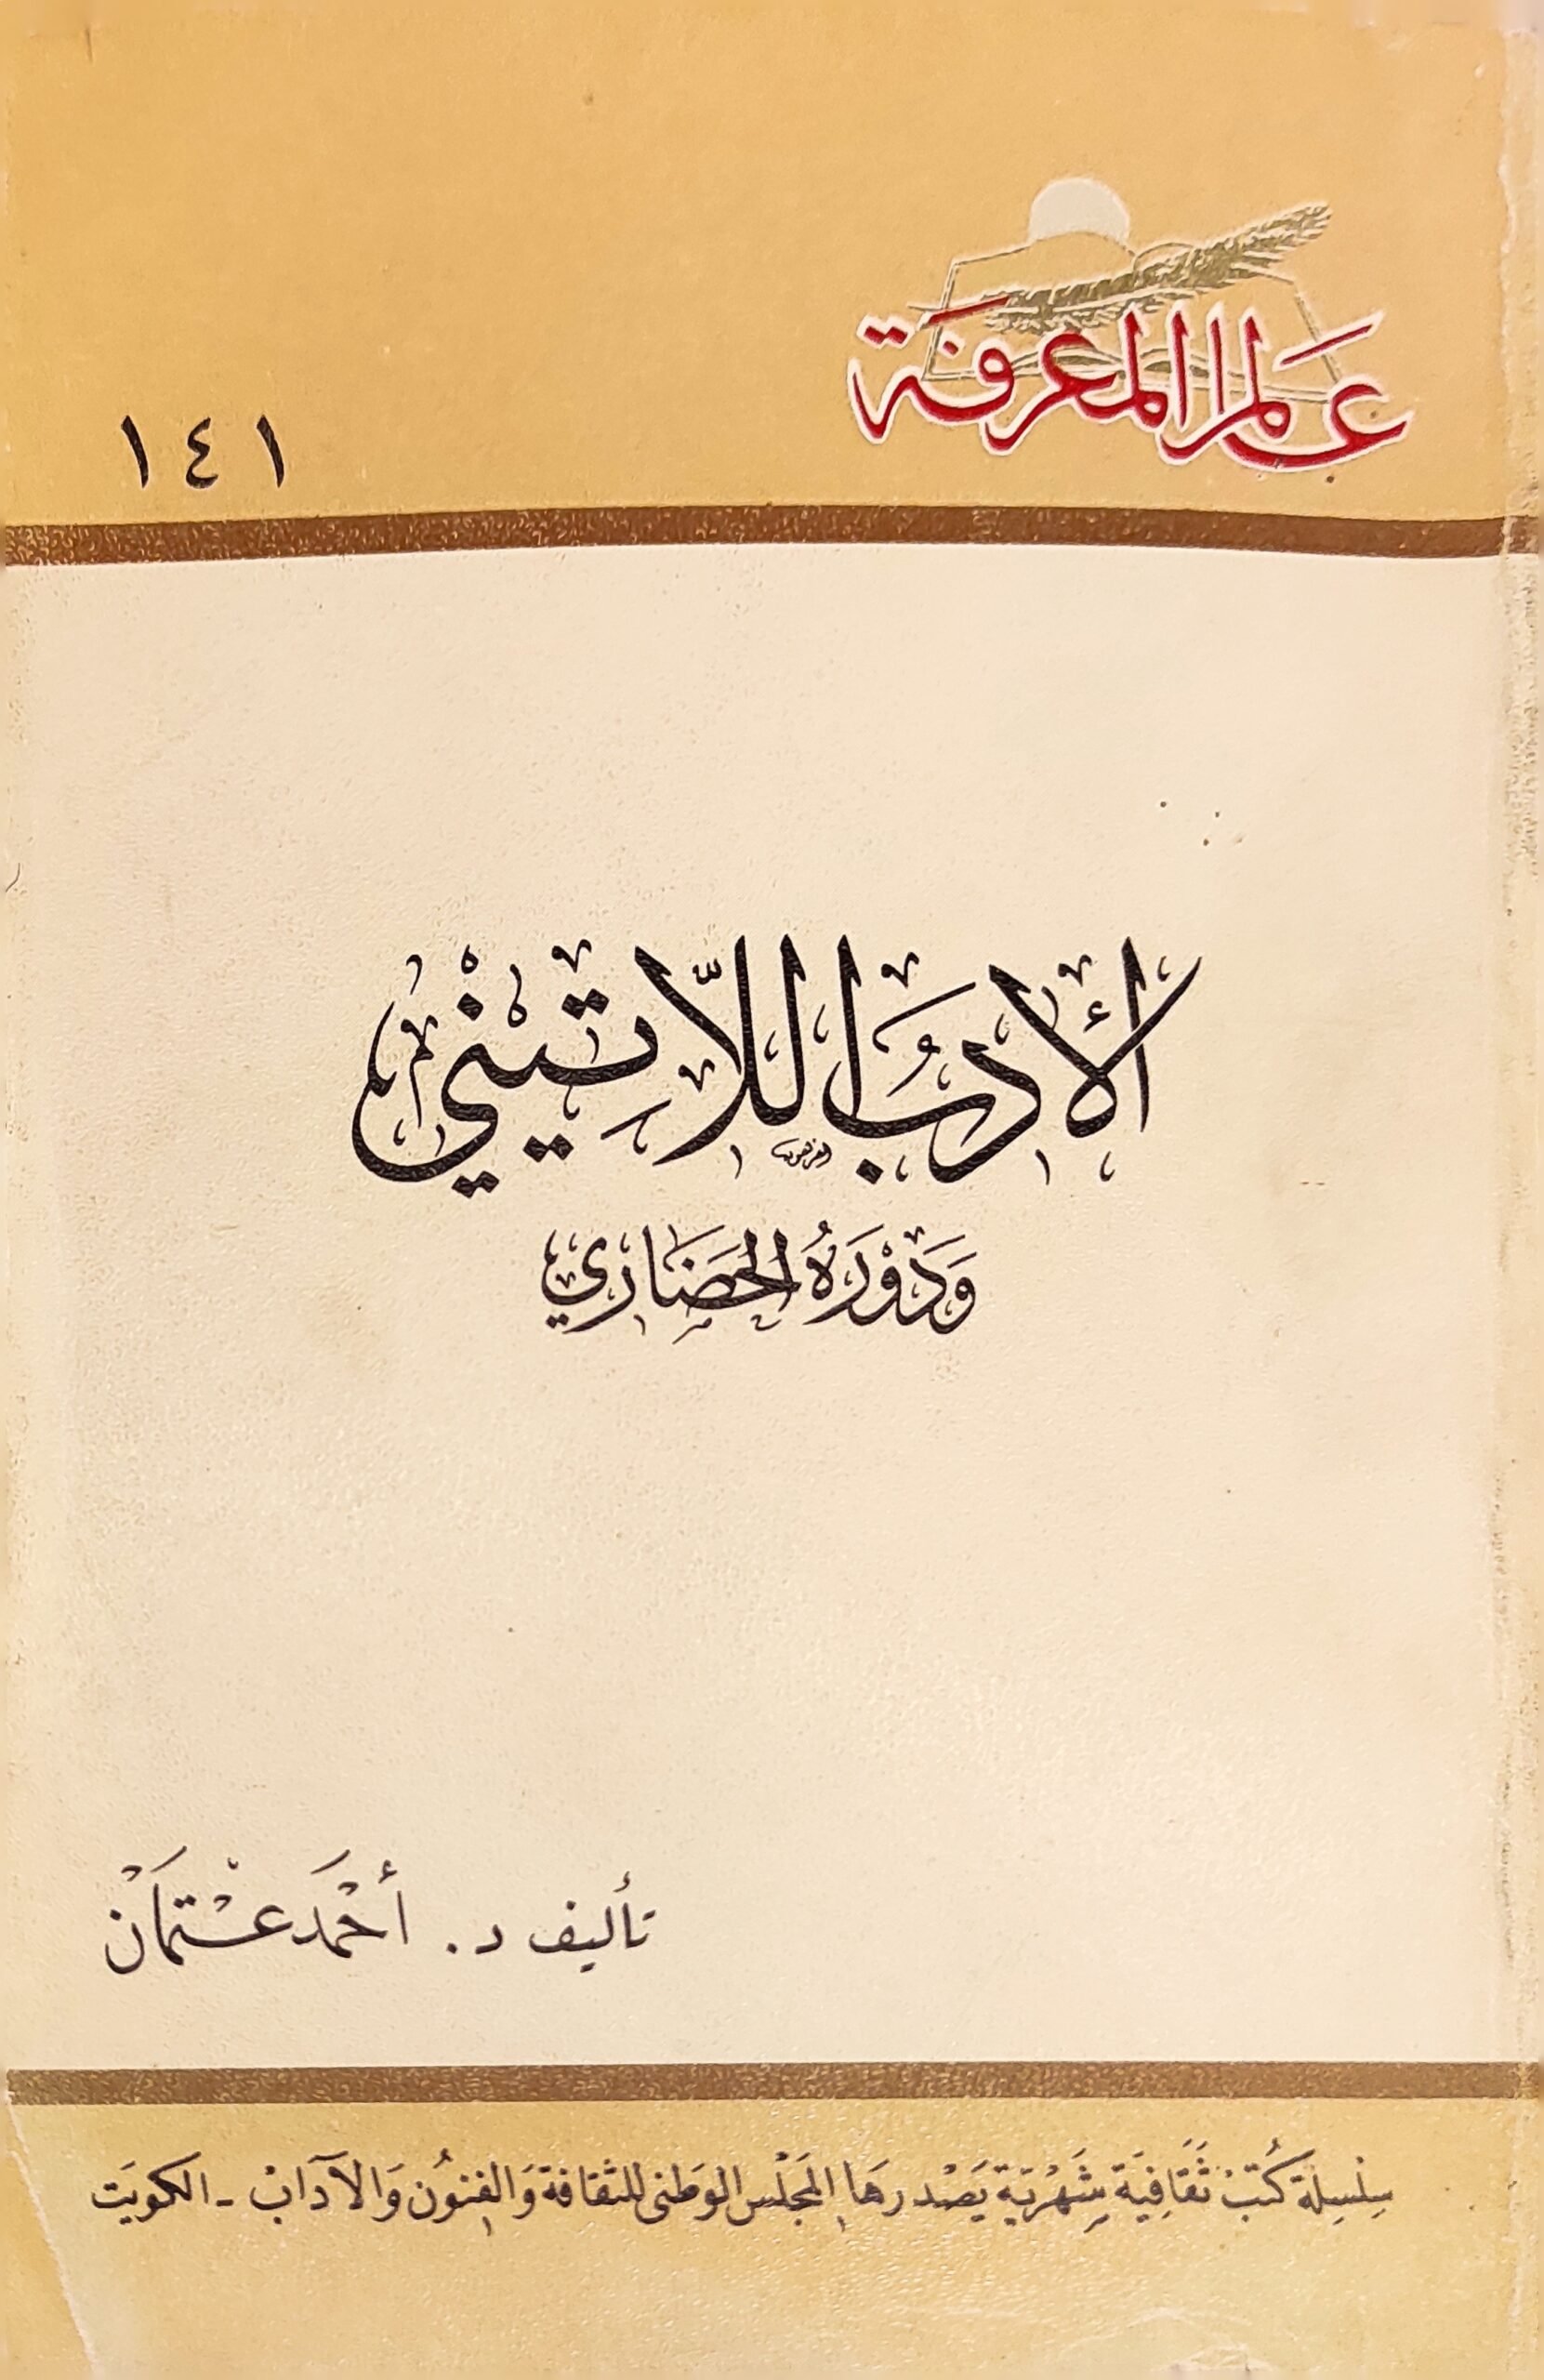 عالم المعرفة
١٤١
الأدبُ اللّاتيْني
وَدَوْرَهُ الحَضَاري
تأليف د. أحْمَد عْتمَانْ
سِلسِلة كُتبْ ثَقَافِيَة شَهْريَة يَصْدرهَا المَجَلس الوَطنى للثقافة وَالفنوُن وَالآدَابْ - الكويَت